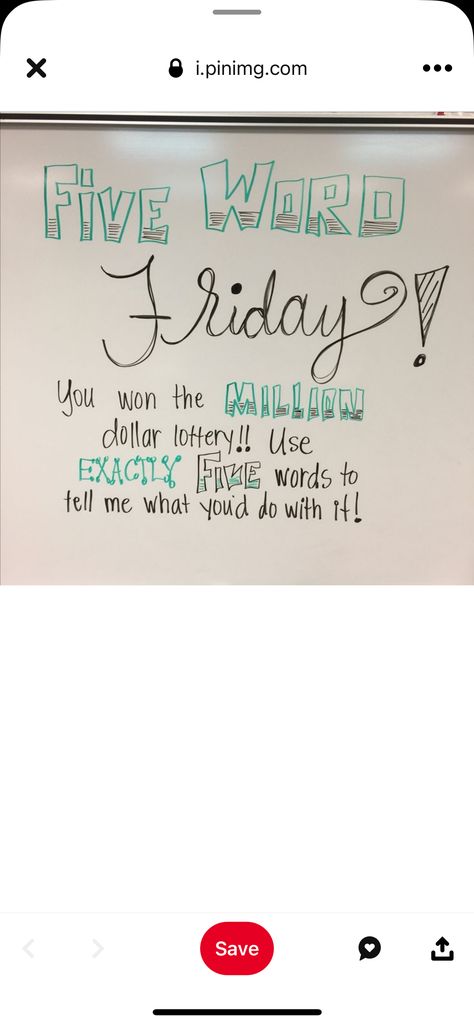 i.pinimg.com
FiVE WORD
Friday!
You won the MILLION
dollar lottery!! Use
EXACTLY FIVE words to
tell me what you'd do with it!
Save